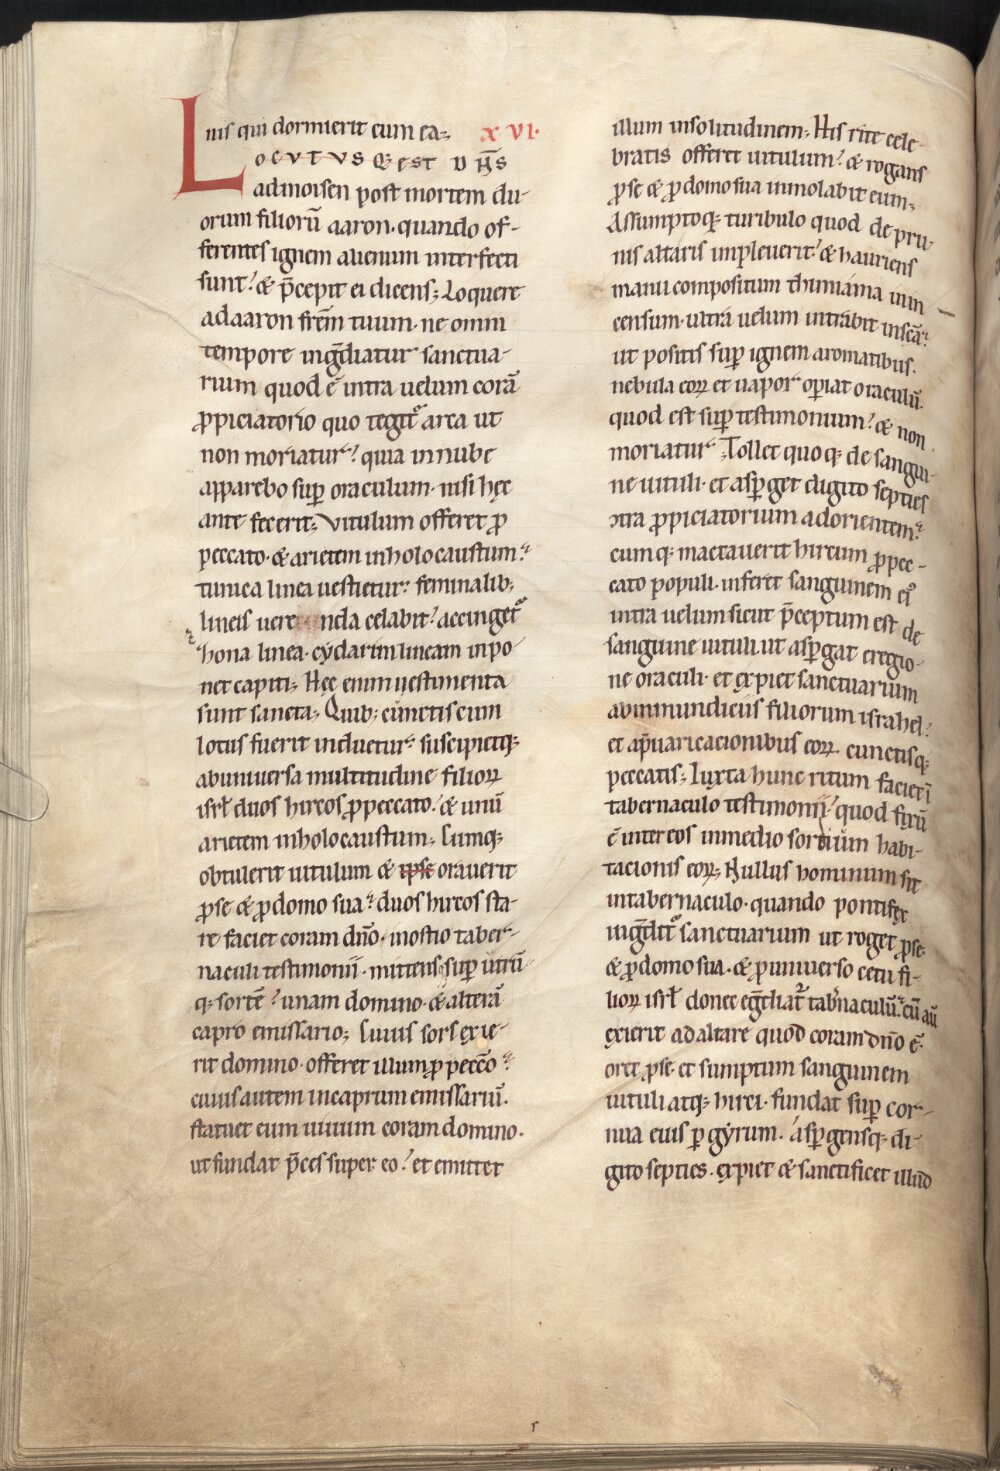 nis qui dormierit cum ea. XVI.
Locutus q; est dn̄s
ad moisen post mortem du-
orum filiorū aaron. quando of-
ferentes ignem alienum interfecti
sunt. & p̄cepit ei dicens; Loquere
ad aaron frēm tuum. ne omni
tempore ingdiatur sanctua-
rium quod ē intra uelum corā
ꝓpiciatorio quo tegit᷑ arca ut
non moriatur. quia in nube
apparebo suꝑ oraculum. nisi hęc
ante fecerit; Vitulum offeret ꝓ
peccato. & arietem in holocaustum.
tunica linea uestietur. feminalib;
lineis uere nda celabit. accinget᷑
zona linea. cydarim lineam inpo
net capiti; Hęc enim uestimenta
sunt sancta; Quib; cunctis cum
lotus fuerit induetur. suscipietq;
ab uniuersa multitudine filioꝝ
isrł duos hircos ꝓ peccato. & unū
arietem in holocaustum; Cumq;
obtulerit uitulum & ipse orauerit
ꝓ se & ꝓ domo sua. duos hircos sta-
re faciet coram dn̄o. in ostio taber-
naculi testimonii. mittens suꝑ utrū
q; sortē. unam domino. & alterā
capro emissario; Cuius sors exie-
rit domino. offeret illum ꝓ pecc̄o.
cuius autem in caprum emissariū.
statuet eum uiuum coram domino.
ut fundat p̄ces super eo. et emittet
illum in solitudinem; His rite cele-
bratis offeret uitulum. & rogans
ꝓ se & ꝓ domo sua inmolabit eum;
Assumptoq; turibulo quod de pru-
nis altaris impleuerit. & hauriens
manu compositum thimiama in in
censum. ultra uelum intrabit in scā.
ut positis suꝑ ignem aromatibus.
nebula eoꝝ et uapor oꝑiat oraculū.
quod est suꝑ testimonium. & non
moriatur; Tollet quoq; de sangui-
ne uituli. et asꝑget digito septies
ↄtra ꝓpiciatorium ad orientem.
cumq; mactauerit hircum ꝓ pec-
cato populi. inferet sanguinem ei᷒
intra uelum sicut p̄ceptum est de
sanguine uituli ut asꝑgat e regio-
ne oraculi. et expiet sanctuarium
ab inmundiciis filiorum israhel.
et ap̄uaricacionibus eoꝝ. cunctisq;
peccatis; Iuxta hunc ritum faciet ī
tabernaculo testimonii. quod fixū
ē inter eos in medio sordium habi-
tacionis eoꝝ; Nullus hominum sit
in tabernaculo. quando pontifex
ingdit᷑ sanctuarium ut roget ꝓ se.
& ꝓ domo sua. & ꝓ uniuerso cetu fi-
lioꝝ isrł donec egdiat᷑ tab̄naculū. cū aū
exierit ad altare quod coram dn̄o ē.
oret ꝓ se. et sumptum sanguinem
uituli atq; hirci. fundat suꝑ cor-
nua eius ꝑ gyrum. asꝑgensq; di-
gito septies. expiet & sanctificet illud